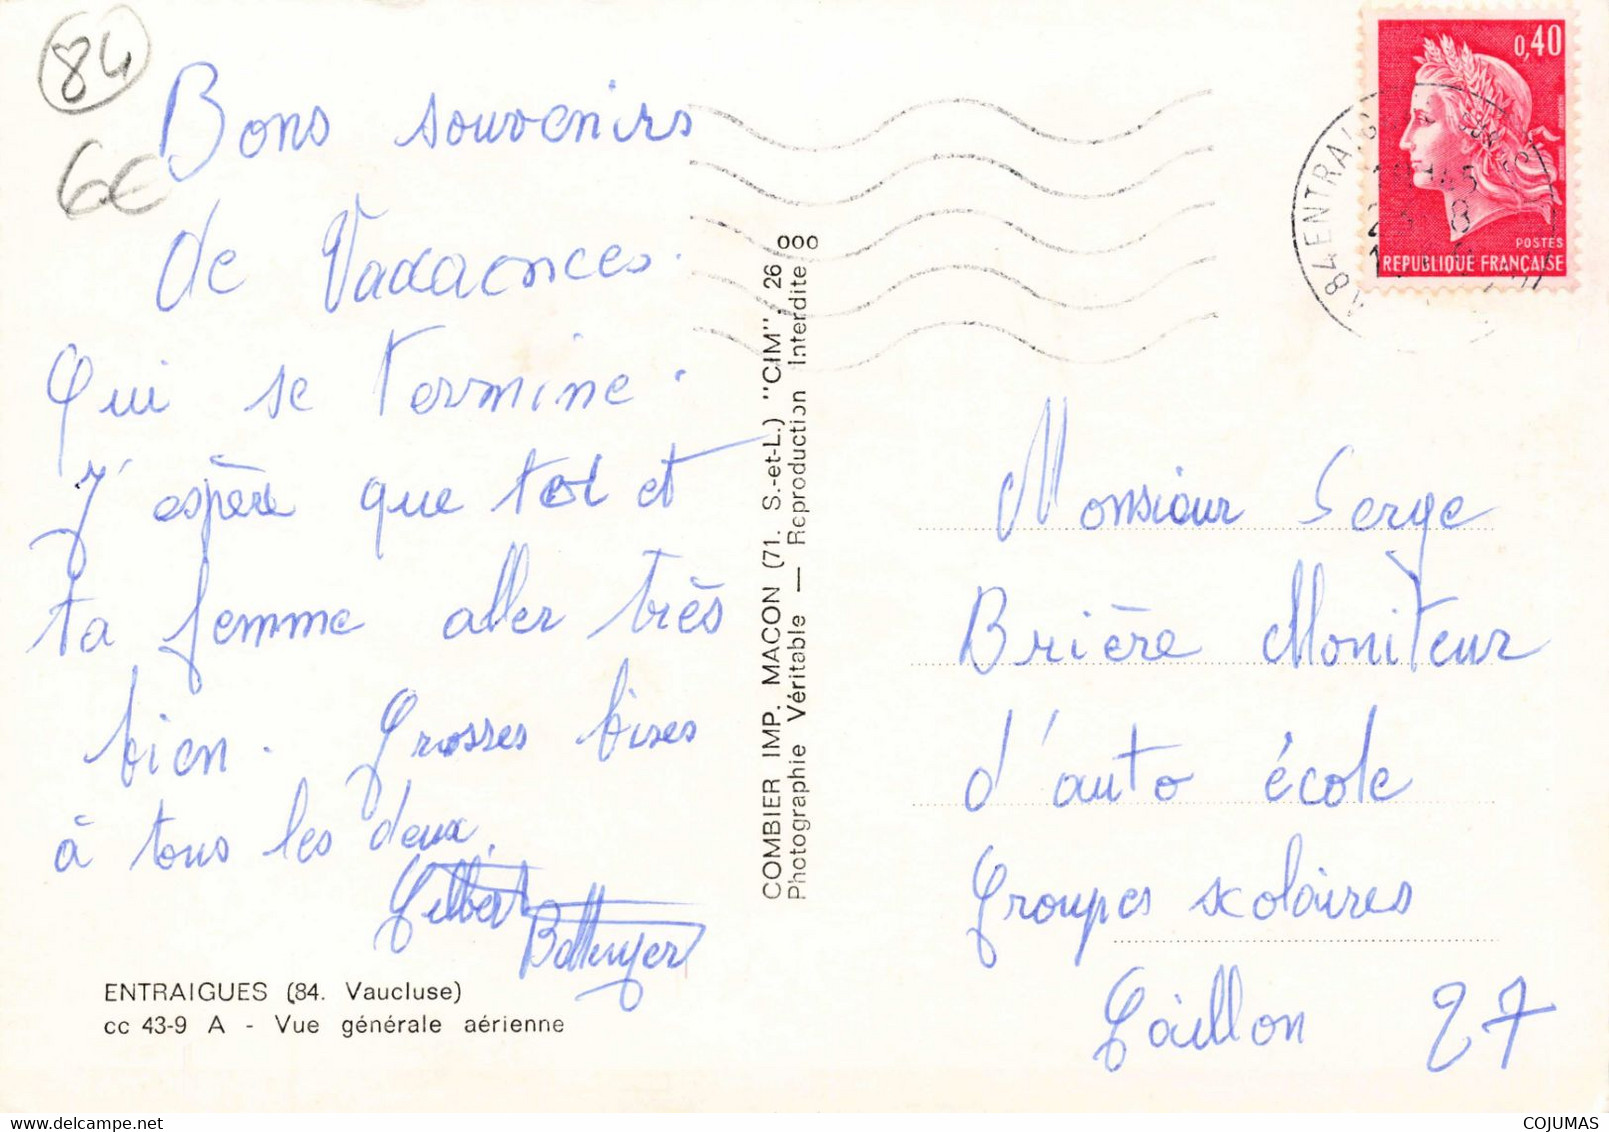 84
6€
Bons souvenirs
de Vadaonces.
Qui se termine.
J'espère que toi et
ta femme aller très
bien. Grosses bises
à tous les deux.
Gilbert
ENTRAIGUES (84. Vaucluse)
cc 43-9 A - Vue générale aérienne
COMBIER IMP. MACON (71. S.-et-L.) "CIM" 26 000
Photographie Véritable — Reproduction Interdite
0,40
POSTES
REPUBLIQUE FRANÇAISE
84 ENTRAIG
Monsieur Serge
Brière Moniteur
d'auto école
Groupes scolaires
Gaillon 27
www.delcampe.net
COJUMAS